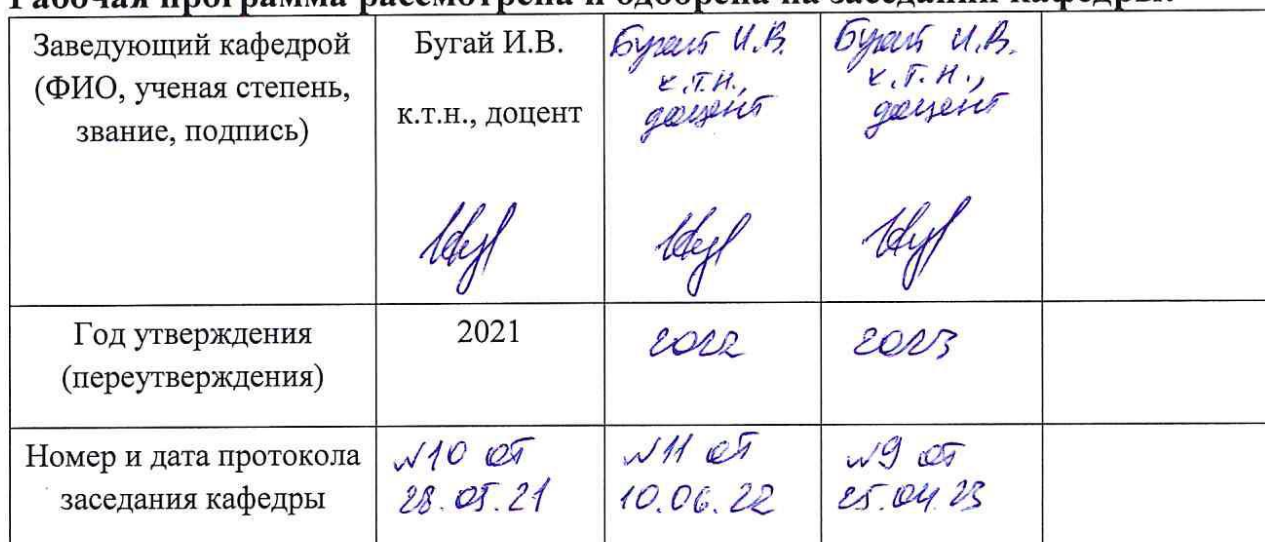 Рабочая программа рассмотрена и одобрена на заседании кафедры:
Заведующий кафедрой
(ФИО, ученая степень,
звание, подпись)
Бугай И.В.
к.т.н., доцент
Бугай И.В.
к.т.н.,
доцент
Бугай И.В.
к.т.н.,
доцент
Год утверждения
(переутверждения)
2021
2022
2023
Номер и дата протокола
заседания кафедры
№10 от
28.05.21
№11 от
10.06.22
№9 от
25.04.23